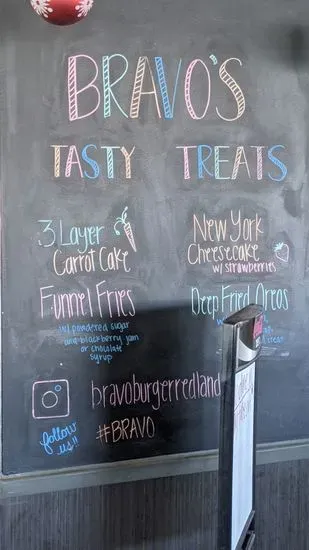 BRAVO'S
TASTY TREATS
3 Layer
Carrot Cake
Funnel Fries
w/ powdered sugar
and blackberry jam
or chocolate
syrup
New York
Cheesecake
w/ strawberries
Deep Fried Oreos
follow
us!!
bravoburgerredland
#BRAVO